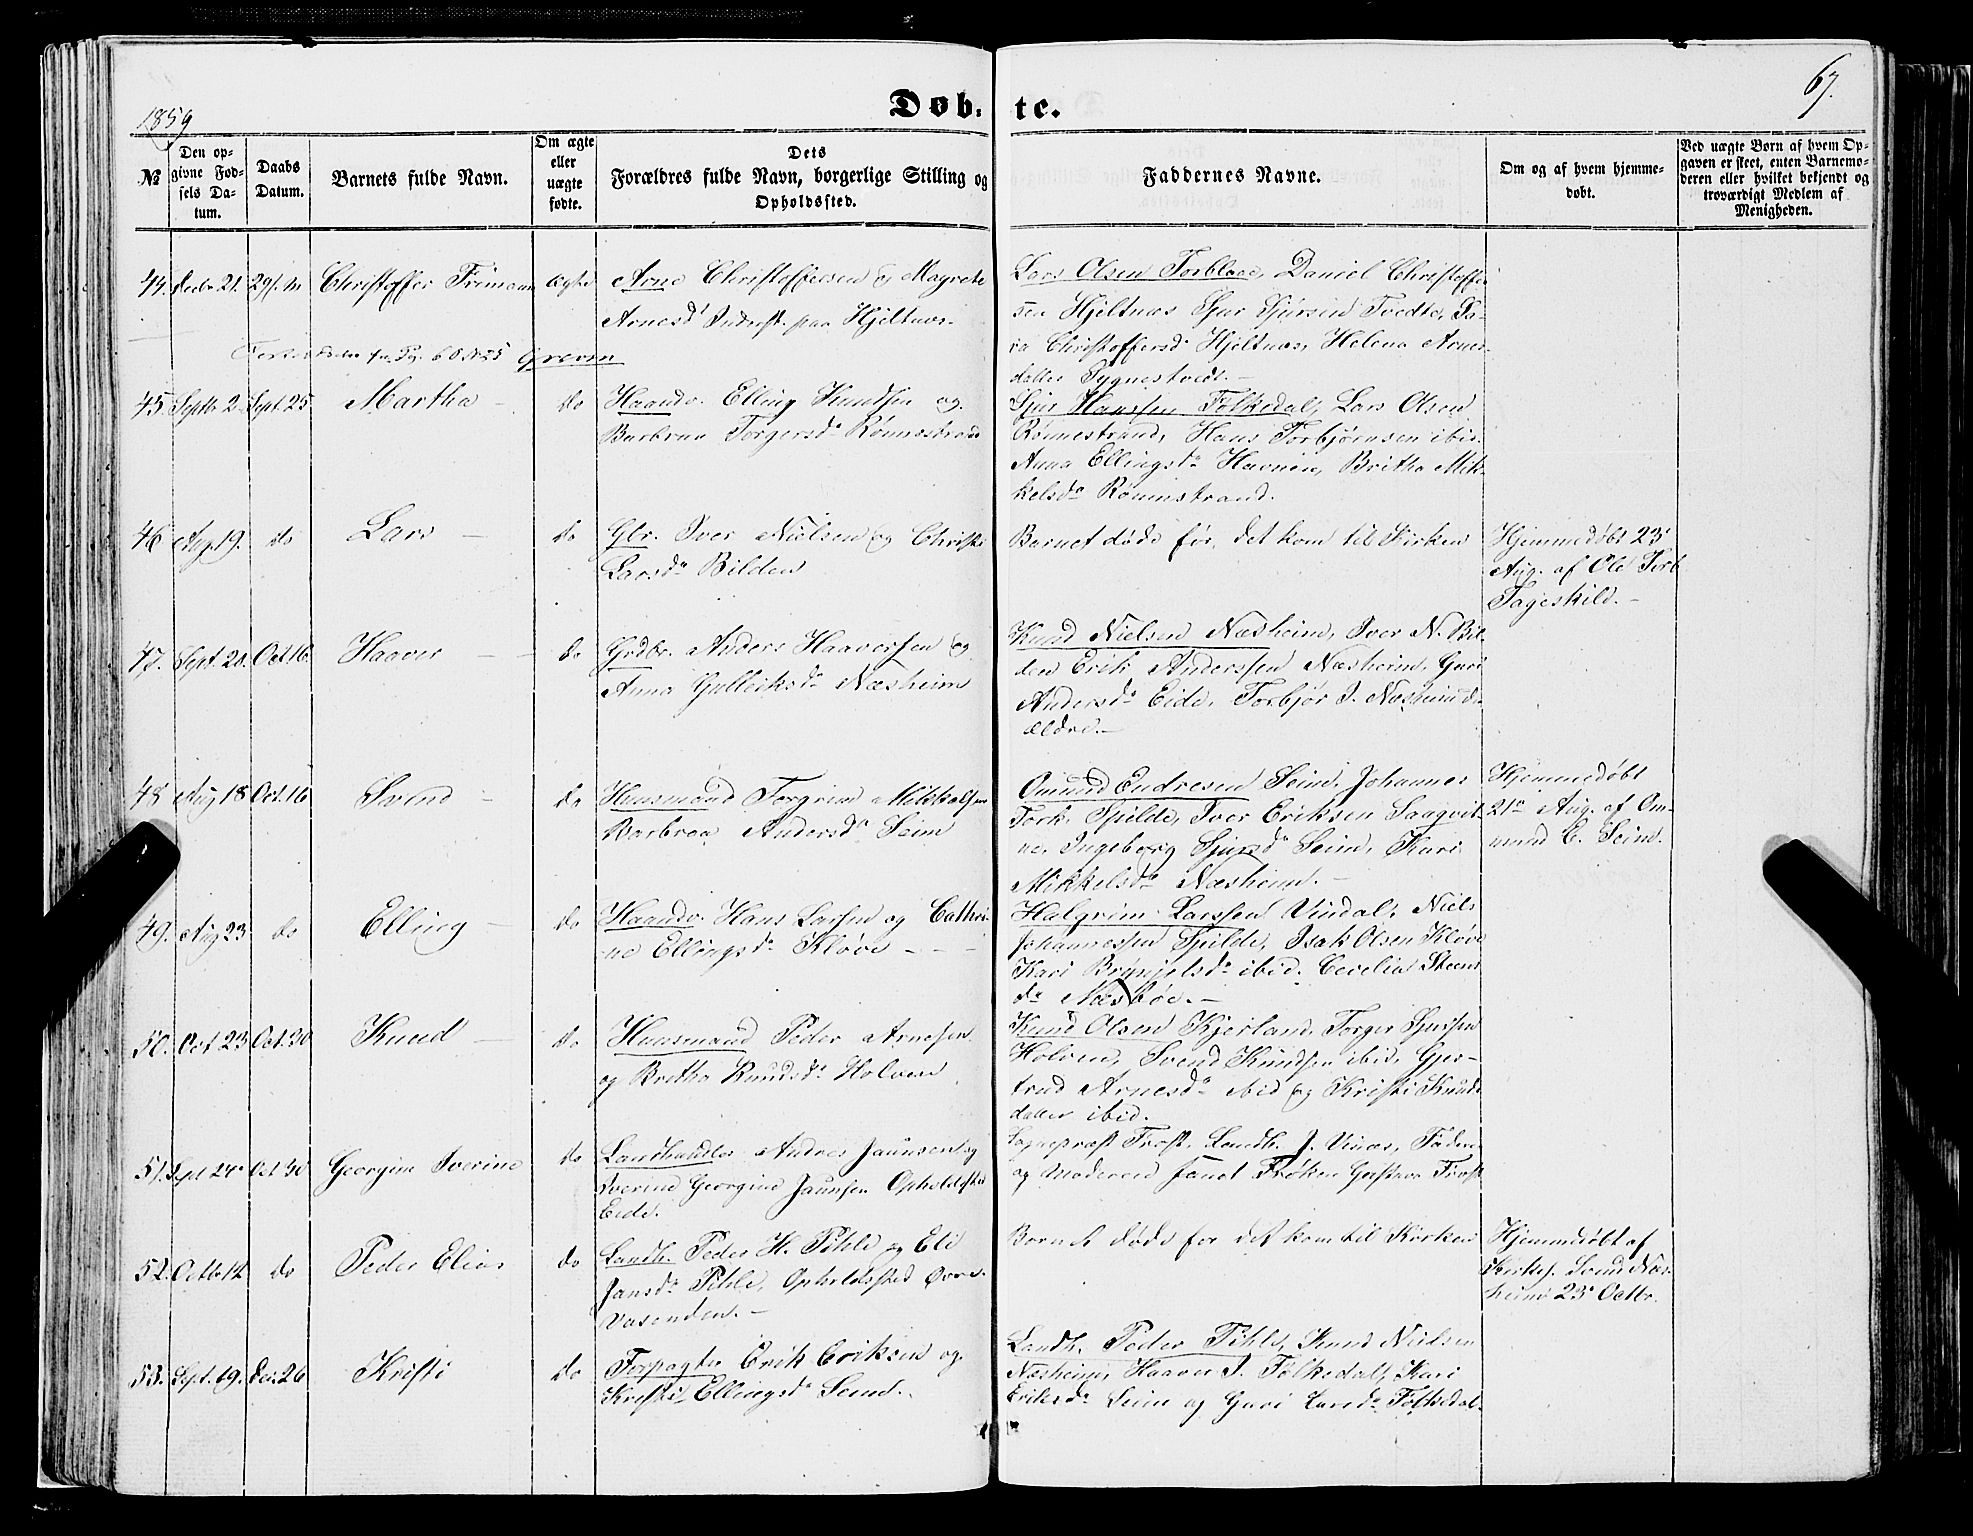 1859
67.
Døb- te.
№
Den op-
givne Fød-
sels Da-
tum.
Daabs
Datum.
Barnets fulde Navn.
Om ægte
eller
uægte
fødte.
Dets
Forældres fulde Navn, borgerlige Stilling og
Opholdssted.
Faddernes Navne.
Om og af hvem hjemme-
døbt.
Ved uægte Børn af hvem Op-
gaven er skeet, enten Barnemo-
deren eller hvilket bekjendt og
troværdigt Medlem af
Menigheden.
44. Decbr. 21. Christoffer Frimann ægte Arne Christoffersen og Magrete
Arnesdr paa Hjeltnæs
Lars Olsen Torblaae, Daniel Christoffer-
sen Hjeltnæs Sjur Sjursen Tvedte,
Christoffersdr Hjeltnæs, Helena Arnes-
datter Sygnestvedt.
Pg. 60 No 25 Graven
45. Septb. 2 Sept. 25 Martha - do Haandv. Elling Knudsen og
Barbraa Torgersdr Rønnestrand
Sjur Hanssen Folkedal, Lars Olsen
Rønnestrand, Hans Torbjørnsen ibid.
Anna Ellingsdr Havnen, Britha Mik-
kelsdr Rønnestrand.
46 Aug. 19. do Lars - do Gbr. Iver Nielsen og Christi
Larsdr Bilden
Barnet døde før det kom til Kirken
Hjemmedøbt 23
Aug. af Ole Torb
47. Sept. 20. Oct 16 Haaver - - do Grdbr. Anders Haaversen og
Anna Gulleiksdr Næsheim
Knud Nielsen Næsheim, Iver N. Bil-
den Erik Anderssen Næsheim, Guri
Andersdr Eide, Torbjør I. Næsheim d.
ældre.-
48 Aug 18 Oct. 16 Svend - do Huusmand Torgrim Mikkelsen
Barbraa Andersdr Seim
Omund Endresen Seim, Johannes
Tork. Spilde, Iver Eriksen Saaqvit-
ne, Ingeborg Sjursdr Seim, Kari
Mikkelsdr Næsheim.-
Hjemmedøbt
21de Aug. af Om-
mund E. Seim.
49. Aug 23 do Elling - do Haandv. Hans Larsen og Cathri-
ne Ellingsdr Kløve - - -
Halgrim Larssen Vindal, Niels
Johannessen Spilde, Isak Olsen Kløve
Kari Brynjelsdr ibid. Cecelia Steens
dr Næsbøe.-
50. Oct 23 Oct. 30 Knud - do Huusmand Peder Arnesen
og Britha Knudsdr Holven
Knud Olsen Kjerland, Torger Sjursen
Holven, Svend Knudsen ibid, Gjer-
trud Arnesdr ibid og Kristi Knuds
datter ibid.
51. Sept 24 Oct 30 Georgine Iverine do Landhandler Andres Jaunsen og
Iverine Georgine Jaunsen Opholdsted
Eide.
Sognepræst Frost. Landh. J. Vinæs, Faderen
og Moderen samt Frøken Gustava Frost
52. Octb 12 do Peder Elias do Landh. Peder H. Pihl og Eli
Jansdr Pihl, Opholdssted Øvre-
vasenden.-
Barnet døde før det kom til Kirken
Hjemmedøbt af
Kirkes. Svend Næs-
heim 23 Octbr.
53. Sept. 19. Dec. 26 Kristi do Forpagter Erik Eriksen og
Kristi Ellingsdr Seim.
Landh. Peder Pihl, Knud Nielsen
Næsheim, Haaver I. Folkedal, Kari
Eriksdr Seim og Guri Larsdr Folkedal.